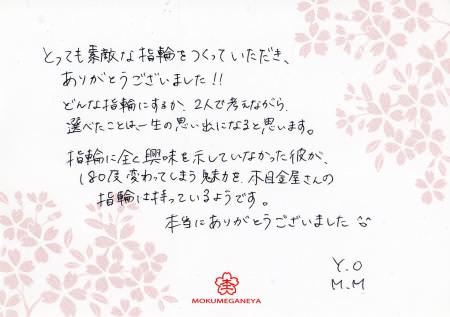 とっても素敵な指輪をつくっていただき、
ありがとうございました!!
どんな指輪にするか、2人で考えながら、
選べたことは、一生の思い出になると思います。
指輪に全く興味を示していなかった彼が、
180度変わってしまう魅力を、木目金屋さんの
指輪は持っているようです。
本当にありがとうございました
Y.O
M.M
MOKUMEGANEYA